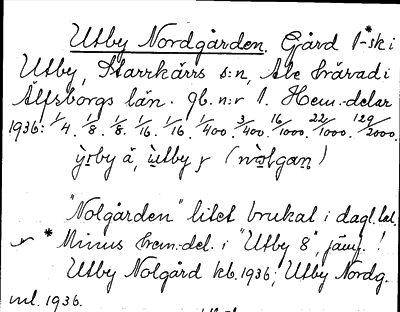 Utby Nordgården. Gård 1*-sk i
Utby, Starrkärrs s:n, Ale härad i
Älfsborgs län. Jb. n:r 1. Hem.-delar
1936: 1/4. 1/8. 1/8. 1/16. 1/16. 1/400. 3/400. 16/1000. 22/1000. 129/2000.
"Nolgården" litet brukat i dagl. tal.
* Minus hem.-del. i "Utby 8", jämf. !
Utby Nolgård kb. 1936; Utby Nordg.
ml. 1936.